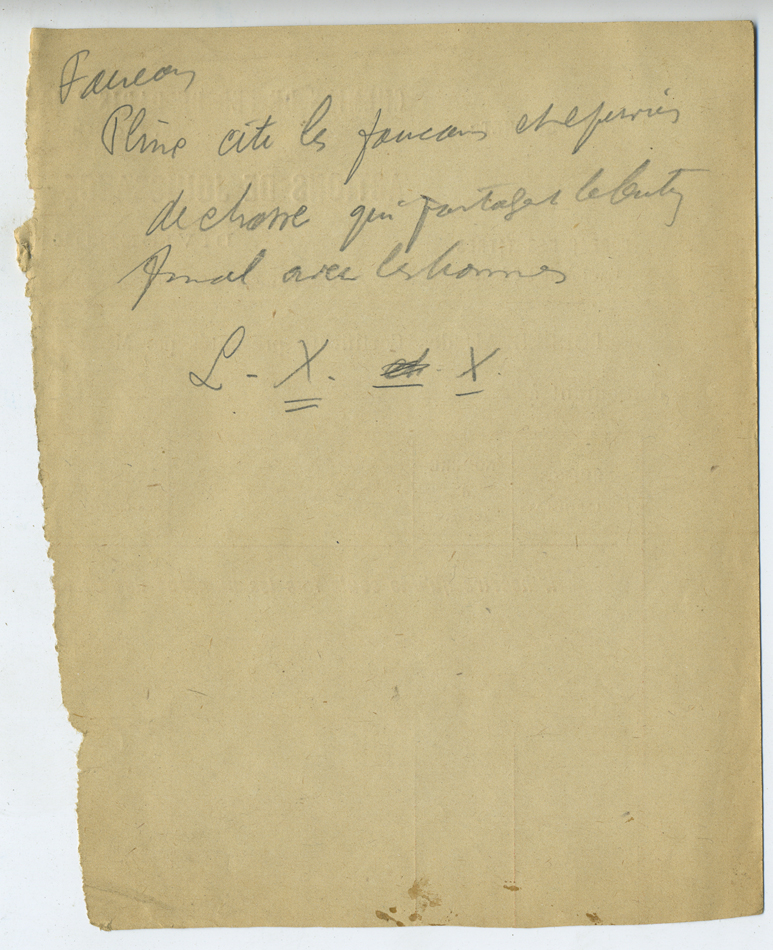 Faucon
Pline cite les faucons et éperviers
de chasse qui partagent le butin
final avec les hommes
L - X. ch. X.